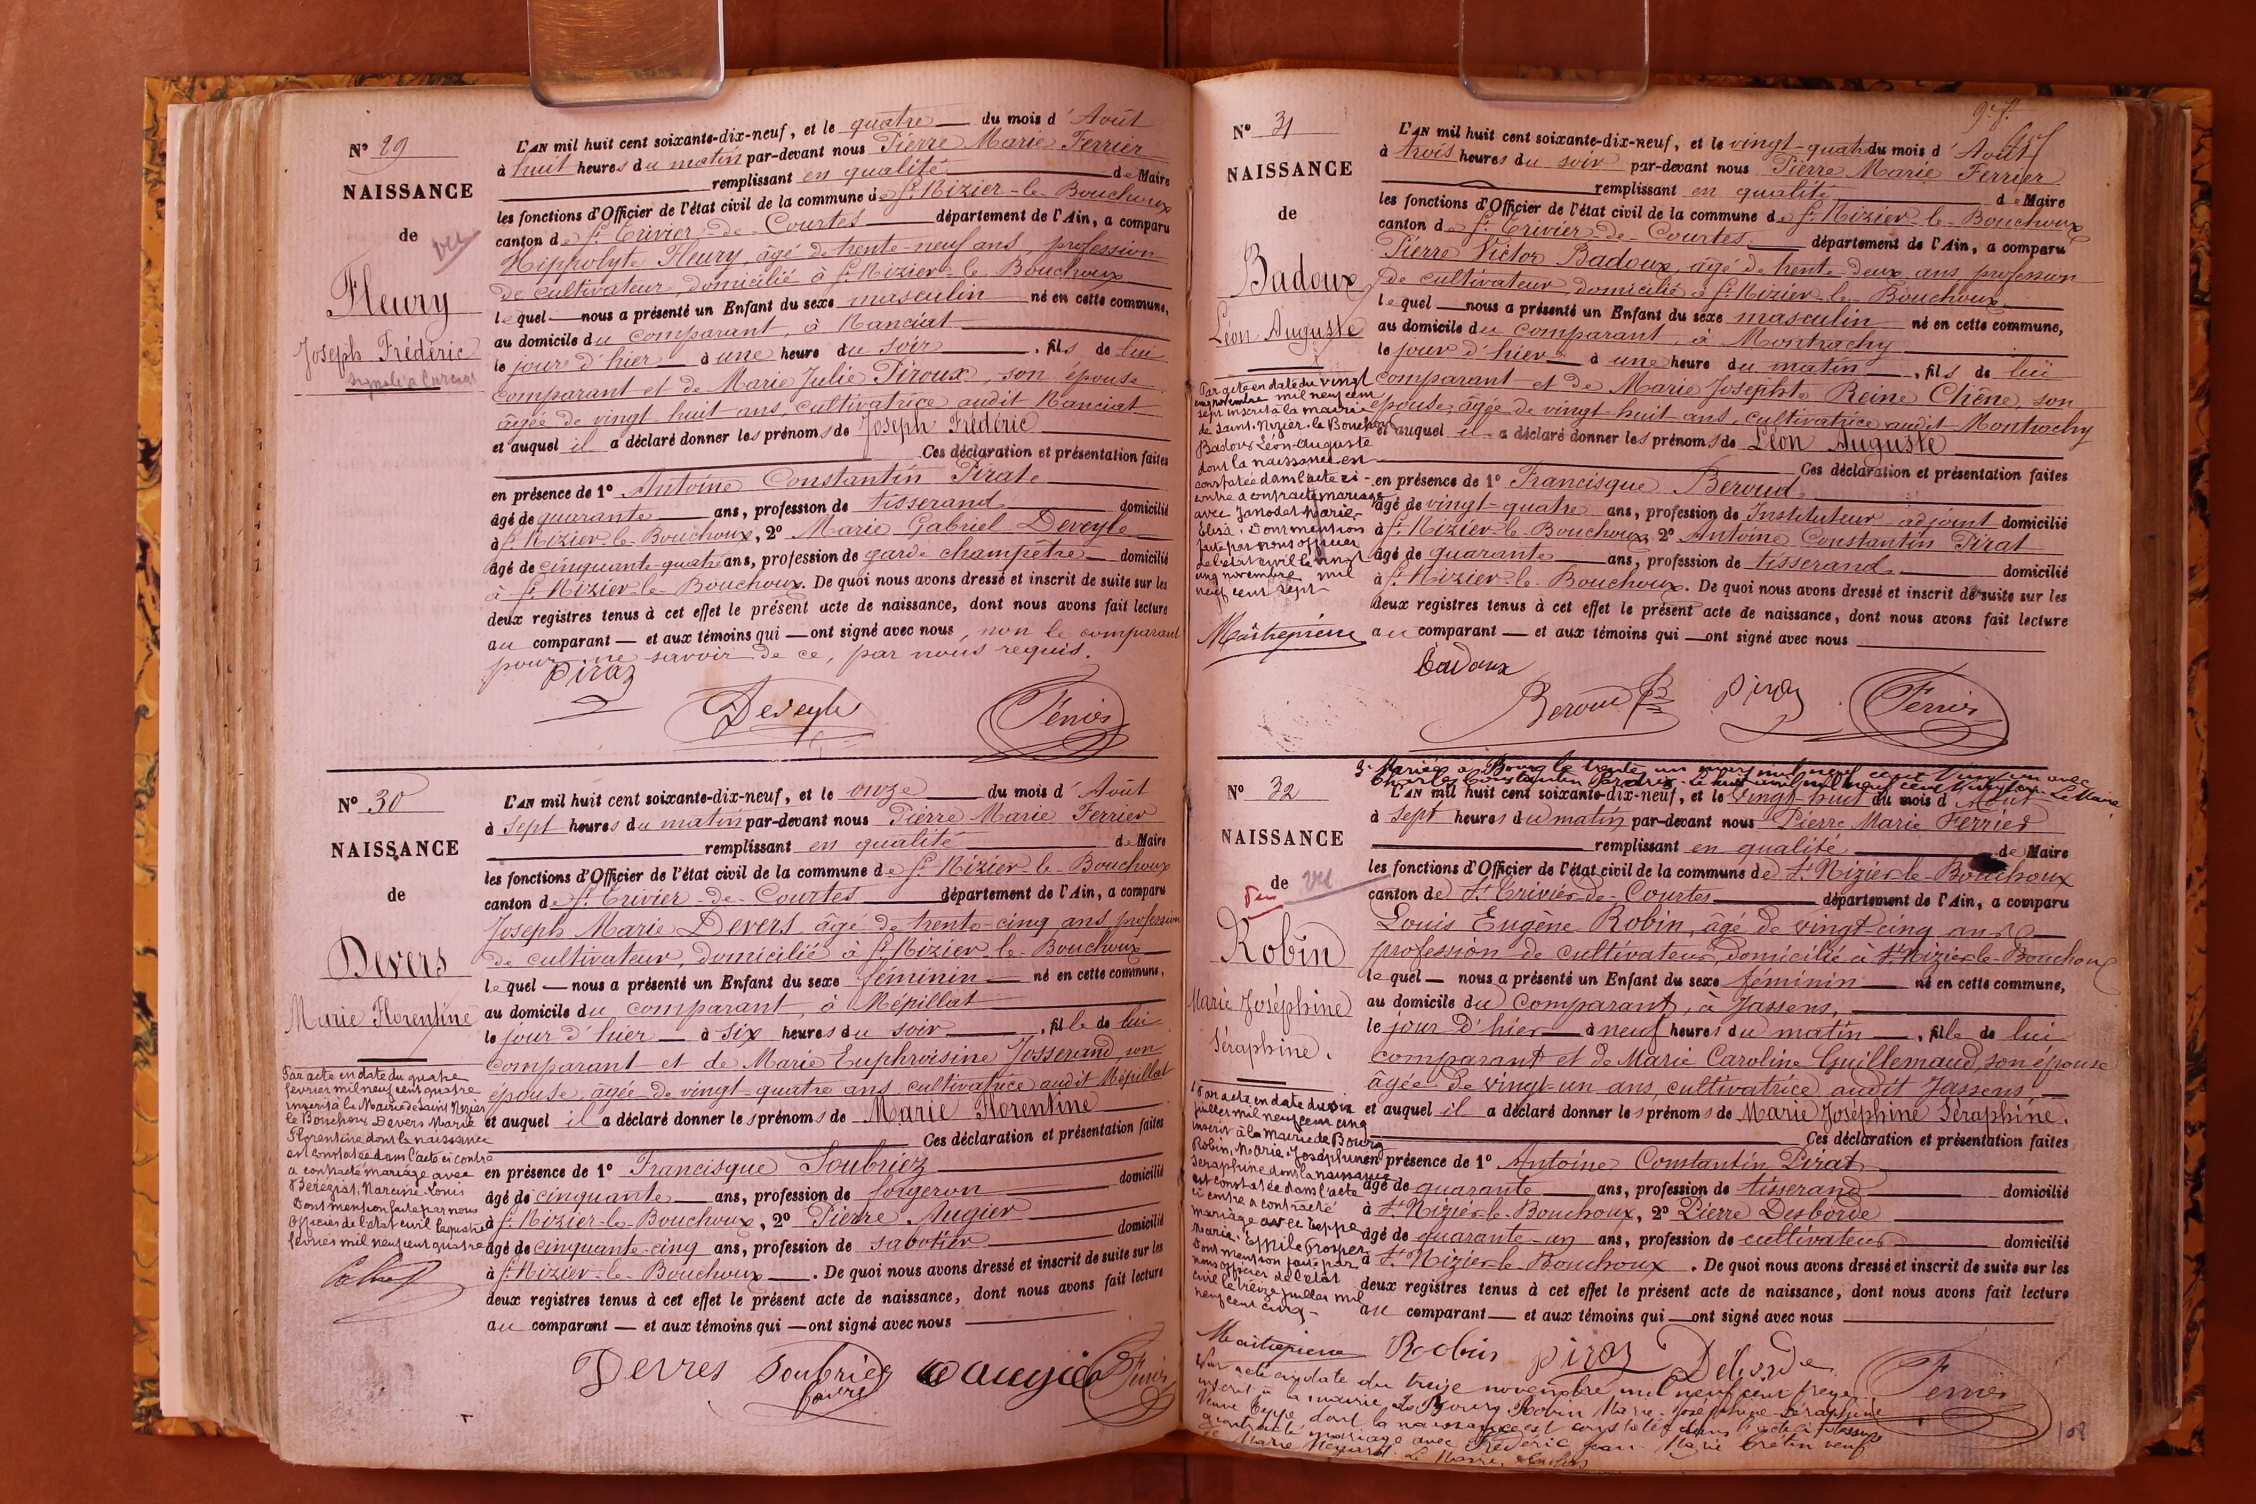 N° 29
NAISSANCE
de
vu
Fleury
Joseph Frédéric
L'AN mil huit cent soixante-dix-neuf, et le quatre du mois d'Août
à huit heures du matin par-devant nous Pierre Marie Ferrier
remplissant en qualité de Maire
les fonctions d'Officier de l'état civil de la commune de St Nizier-le-Bouchoux
canton de St Trivier-de-Courtes département de l'Ain, a comparu
Hippolyte Fleury, âgé de trente-neuf ans, profession
de cultivateur, domicilié à St Nizier-le-Bouchoux
lequel nous a présenté un Enfant du sexe masculin né en cette commune,
au domicile du comparant, à Nanciat
le jour d'hier à une heure du soir, fils de lui
comparant et de Marie Julie Piroux, son épouse
âgée de vingt huit ans, cultivatrice audit Nanciat
et auquel il a déclaré donner les prénoms de Joseph Frédéric
Ces déclaration et présentation faites
en présence de 1° Antoine Constantin Pirat
âgé de quarante ans, profession de tisserand domicilié
à St Nizier-le-Bouchoux, 2° Marie Gabriel Deveyle
âgé de cinquante-quatre ans, profession de garde champêtre domicilié
à St Nizier-le-Bouchoux. De quoi nous avons dressé et inscrit de suite sur les
deux registres tenus à cet effet le présent acte de naissance, dont nous avons fait lecture
au comparant et aux témoins qui ont signé avec nous, non le comparant
pour ne savoir de ce, par nous requis.
Piraz
Deveyle
Ferrier
N° 30
NAISSANCE
de
Devers
Marie Florentine
Par acte en date du quatre
février mil neuf cent quatre
inscrit à la Mairie de Saint Nizier
le Bouchoux Devers Marie
Florentine dont la naissance
est constatée dans l'acte ci contre
a contracté mariage avec
Bereziat, Narcisse Louis
Dont mention faite par nous
Officier de l'état civil le quatre
février mil neuf cent quatre
L'AN mil huit cent soixante-dix-neuf, et le onze du mois d'Août
à sept heures du matin par-devant nous Pierre Marie Ferrier
remplissant en qualité de Maire
les fonctions d'Officier de l'état civil de la commune de St Nizier-le-Bouchoux
canton de St Trivier-de-Courtes département de l'Ain, a comparu
Joseph Marie Devers âgé de trente-cinq ans, profession
de cultivateur, domicilié à St Nizier-le-Bouchoux
lequel nous a présenté un Enfant du sexe féminin né en cette commune,
au domicile du comparant, à Mépillat
le jour d'hier à six heures du soir, fille de lui
comparant et de Marie Euphroisine Josserand, son
épouse, âgée de vingt-quatre ans cultivatrice audit Mépillat
et auquel il a déclaré donner les prénoms de Marie Florentine
Ces déclaration et présentation faites
en présence de 1° Francisque Soubriez
âgé de cinquante ans, profession de forgeron domicilié
à St Nizier-le-Bouchoux, 2° Pierre Augier
âgé de cinquante-cinq ans, profession de sabotier domicilié
à St Nizier-le-Bouchoux. De quoi nous avons dressé et inscrit de suite sur les
deux registres tenus à cet effet le présent acte de naissance, dont nous avons fait lecture
au comparant et aux témoins qui ont signé avec nous
Devres Soubriez
Ferrier
N° 31
NAISSANCE
de
Badoux
Léon Auguste
Par acte en date du vingt
cinq novembre mil neuf cent
sept inscrit à la mairie
de Saint-Nizier-le-Bouchoux
Badoux Léon-Auguste
dont la naissance est
constatée dans l'acte ci-
contre a contracté mariage
avec Janodet Marie-
Elisa. Dont mention
faite par nous officier
de l'état civil le vingt
cinq novembre mil
neuf cent sept
L'AN mil huit cent soixante-dix-neuf, et le vingt-quatre du mois d'Août
à trois heures du soir par-devant nous Pierre Marie Ferrier
remplissant en qualité de Maire
les fonctions d'Officier de l'état civil de la commune de St Nizier-le-Bouchoux
canton de St Trivier-de-Courtes département de l'Ain, a comparu
Pierre Victor Badoux, âgé de trente-deux ans, profession
de cultivateur domicilié à St Nizier-le-Bouchoux
lequel nous a présenté un Enfant du sexe masculin né en cette commune,
au domicile du comparant, à Montrachy
le jour d'hier à une heure du matin, fils de lui
comparant et de Marie Josephte Reine Chêne son
épouse, âgée de vingt-huit ans, cultivatrice audit Montrachy
et auquel il a déclaré donner les prénoms de Léon Auguste
Ces déclaration et présentation faites
en présence de 1° Francisque Beroud
âgé de vingt-quatre ans, profession de Instituteur adjoint domicilié
à St Nizier-le-Bouchoux, 2° Antoine Constantin Pirat
âgé de quarante ans, profession de tisserand domicilié
à St Nizier-le-Bouchoux. De quoi nous avons dressé et inscrit de suite sur les
deux registres tenus à cet effet le présent acte de naissance, dont nous avons fait lecture
au comparant et aux témoins qui ont signé avec nous
Badoux
Beroud
Piraz
Ferrier
3° Mariée à Bourg le trente un mars mil neuf cent vingt un avec
N° 32
NAISSANCE
de
vu
Robin
Marie Joséphine
Séraphine.
Par acte en date du six
juillet mil neuf cent cinq
inscrit à la mairie de Bourg
Robin, Marie-Joséphine
Séraphine dont la naissance
est constatée dans l'acte
ci contre a contracté
mariage avec Teppe
Marie-Emile Prosper
Dont mention faite par
nous officier de l'état
civil le treize juillet mil
neuf cent cinq
L'AN mil huit cent soixante-dix-neuf, et le vingt-huit du mois d'Août
à sept heures du matin par-devant nous Pierre Marie Ferrier
remplissant en qualité de Maire
les fonctions d'Officier de l'état civil de la commune de St Nizier-le-Bouchoux
canton de St Trivier-de-Courtes département de l'Ain, a comparu
Louis Eugène Robin, âgé de vingt-cinq ans
profession de cultivateur, domicilié à St Nizier-le-Bouchoux
lequel nous a présenté un Enfant du sexe féminin né en cette commune,
au domicile du comparant, à Jassens,
le jour d'hier à neuf heures du matin, fille de lui
comparant et de Marie Caroline Guillemaud, son épouse
âgée de vingt-un ans, cultivatrice audit Jassens
et auquel il a déclaré donner les prénoms de Marie Joséphine Séraphine.
Ces déclaration et présentation faites
en présence de 1° Antoine Constantin Pirat
âgé de quarante ans, profession de tisserand domicilié
à St Nizier-le-Bouchoux, 2° Pierre Desborde
âgé de quarante-un ans, profession de cultivateur domicilié
à St Nizier-le-Bouchoux. De quoi nous avons dressé et inscrit de suite sur les
deux registres tenus à cet effet le présent acte de naissance, dont nous avons fait lecture
au comparant et aux témoins qui ont signé avec nous
Robin Piraz Déborde
Ferrier
Par acte en date du treize novembre mil neuf cent treize
inscrit à la mairie de Bourg Robin Marie-Joséphine-Séraphine
Veuve Teppe, dont la naissance est constatée dans l'acte ci-dessus
a contracté mariage avec Frédéric Jean-Marie Crétin veuf
de Marie Meynard. Le Maire,
108